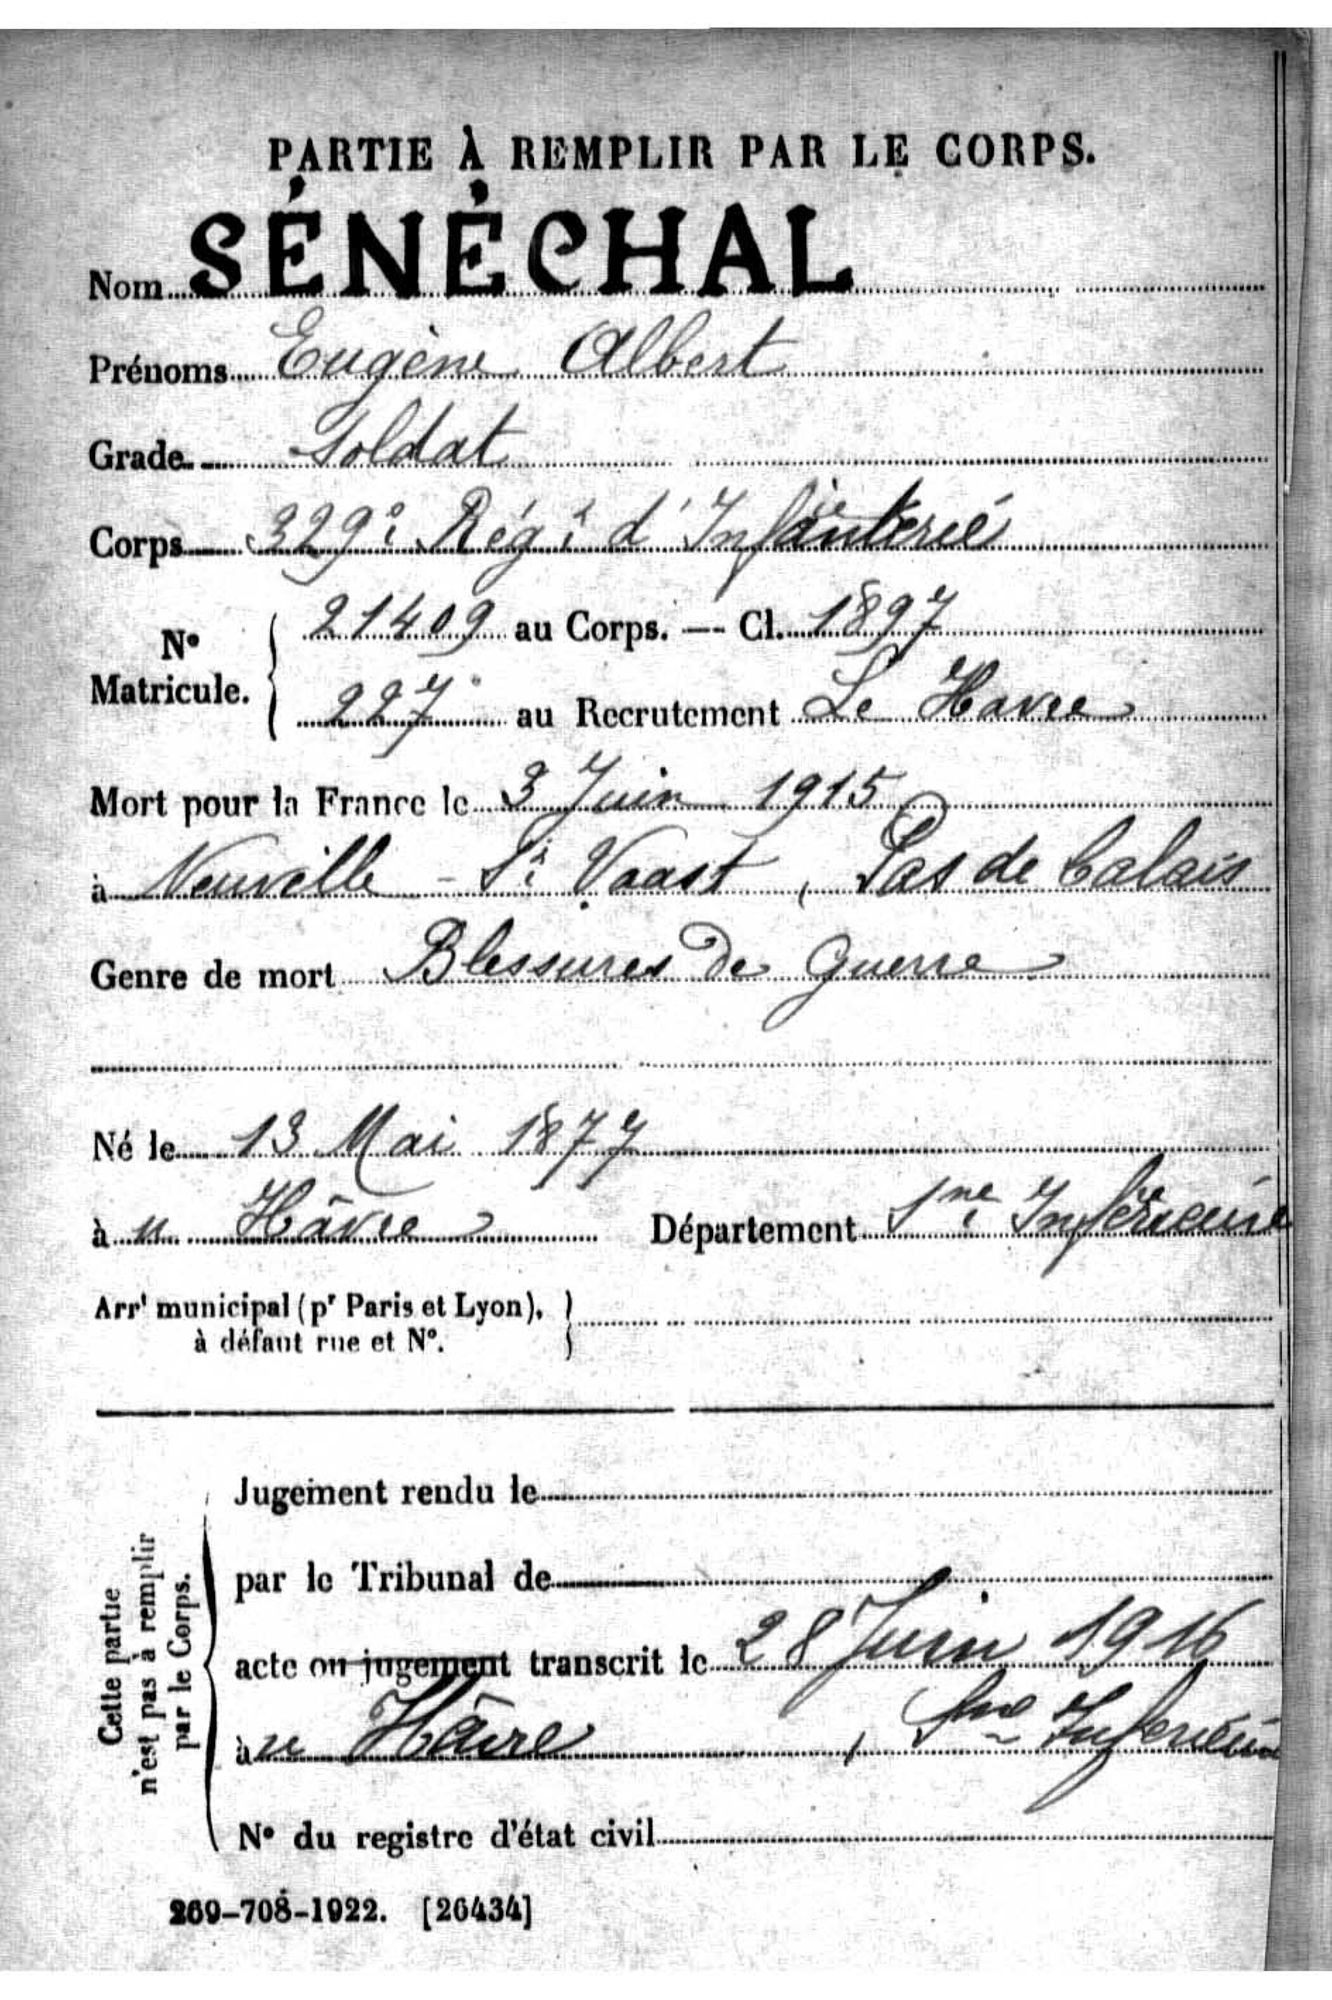 PARTIE À REMPLIR PAR LE CORPS.
Nom SÉNÉCHAL
Prénoms Eugène Albert
Grade Soldat
Corps 329e Régt d'Infanterie
N° Matricule. 21409 au Corps. — Cl. 1897
227 au Recrutement Le Havre
Mort pour la France le 3 Juin 1915
à Neuville - St Vaast, Pas de Calais
Genre de mort Blessures de Guerre
Né le 13 Mai 1877
à u Hâvre Département Sne Inférieure
Arrt municipal (pr Paris et Lyon),
à défaut rue et N°.
Cette partie
n'est pas à remplir
par le Corps.
Jugement rendu le
par le Tribunal de
acte ou jugement transcrit le 28 Juin 1916
à u Hâvre, Sne Inférieure
N° du registre d'état civil
269-708-1922. [26434]